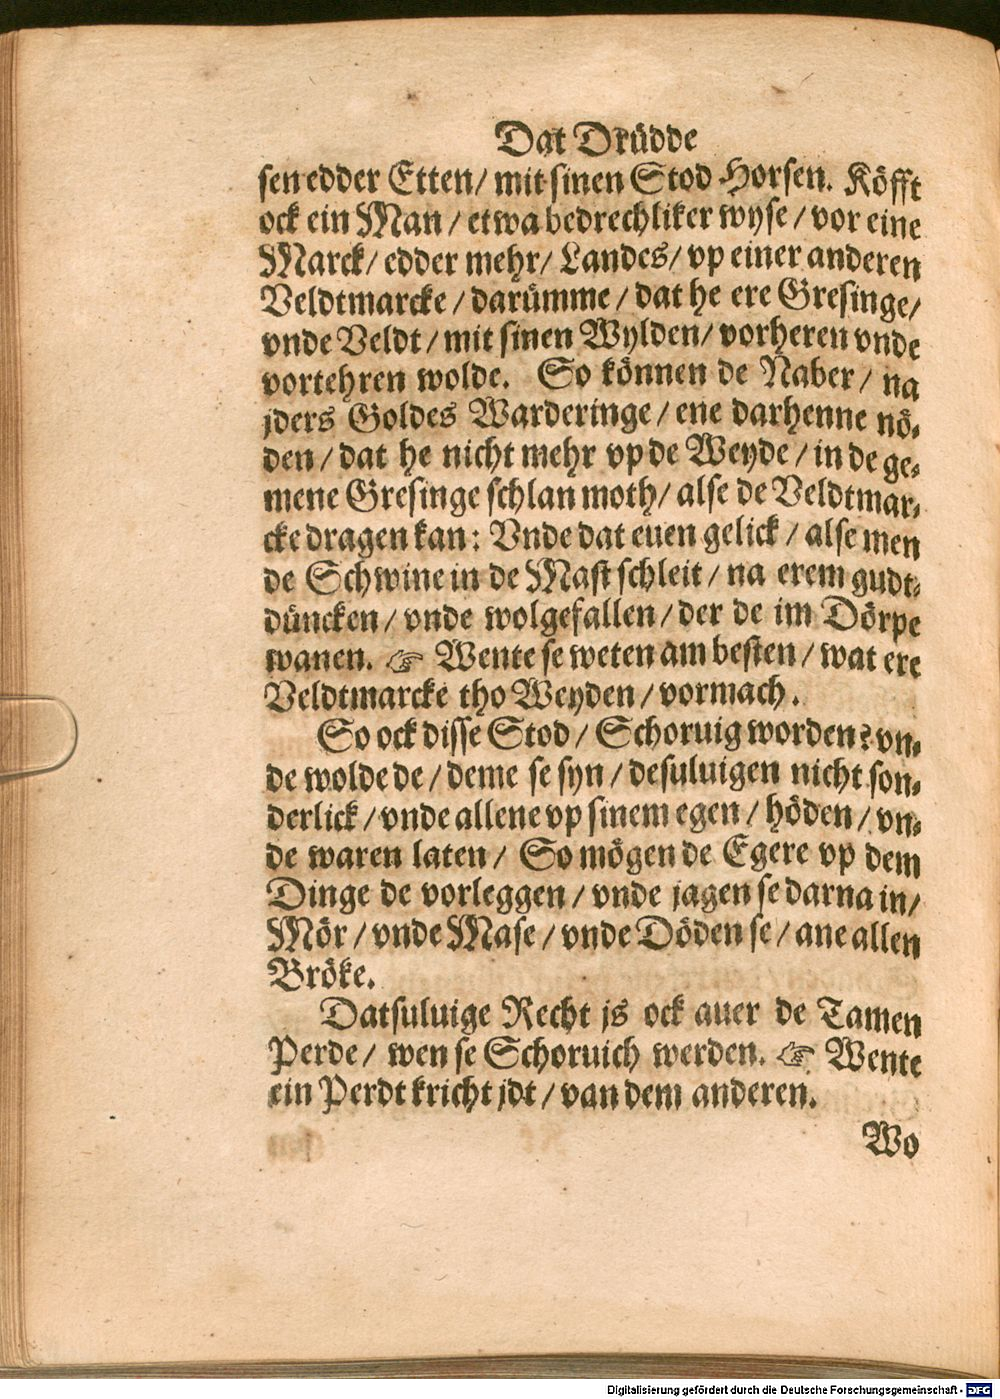 Dat Drüdde
sen edder Etten/ mit sinen Stod Horsen. Köfft
ock ein Man / etwa bedrechliker wyse / vor eine
Marck/ edder mehr/ Landes/ vp einer anderen
Veldtmarcke / darümme / dat he ere Gresinge/
vnde Veldt / mit sinen Wylden/ vorheren vnde
vortehren wolde. So können de Naber / na
jders Goldes Warderinge / ene darhenne nö⸗
den / dat he nicht mehr vp de Weyde / in de ge⸗
mene Gresinge schlan moth/ alse de Veldtmar⸗
cke dragen kan: Vnde dat euen gelick / alse men
de Schwine in de Mast schleit / na erem gudt⸗
düncken / vnde wolgefallen / der de im Dörpe
wanen. ☞ Wente se weten am besten / wat ere
Veldtmarcke tho Weyden / vormach.
So ock disse Stod / Schoruig worden? vn⸗
de wolde de / deme se syn / desuluigen nicht son⸗
derlick / vnde allene vp sinem egen / höden / vn⸗
de waren laten / So mögen de Egere vp dem
Dinge de vorleggen / vnde jagen se darna in/
Mör / vnde Mase / vnde Döden se / ane allen
Bröke.
Datsuluige Recht js ock auer de Tamen
Perde / wen se Schoruich werden. ☞ Wente
ein Perdt kricht jdt / van dem anderen.
Wo
Digitalisierung gefördert durch die Deutsche Forschungsgemeinschaft - DFG